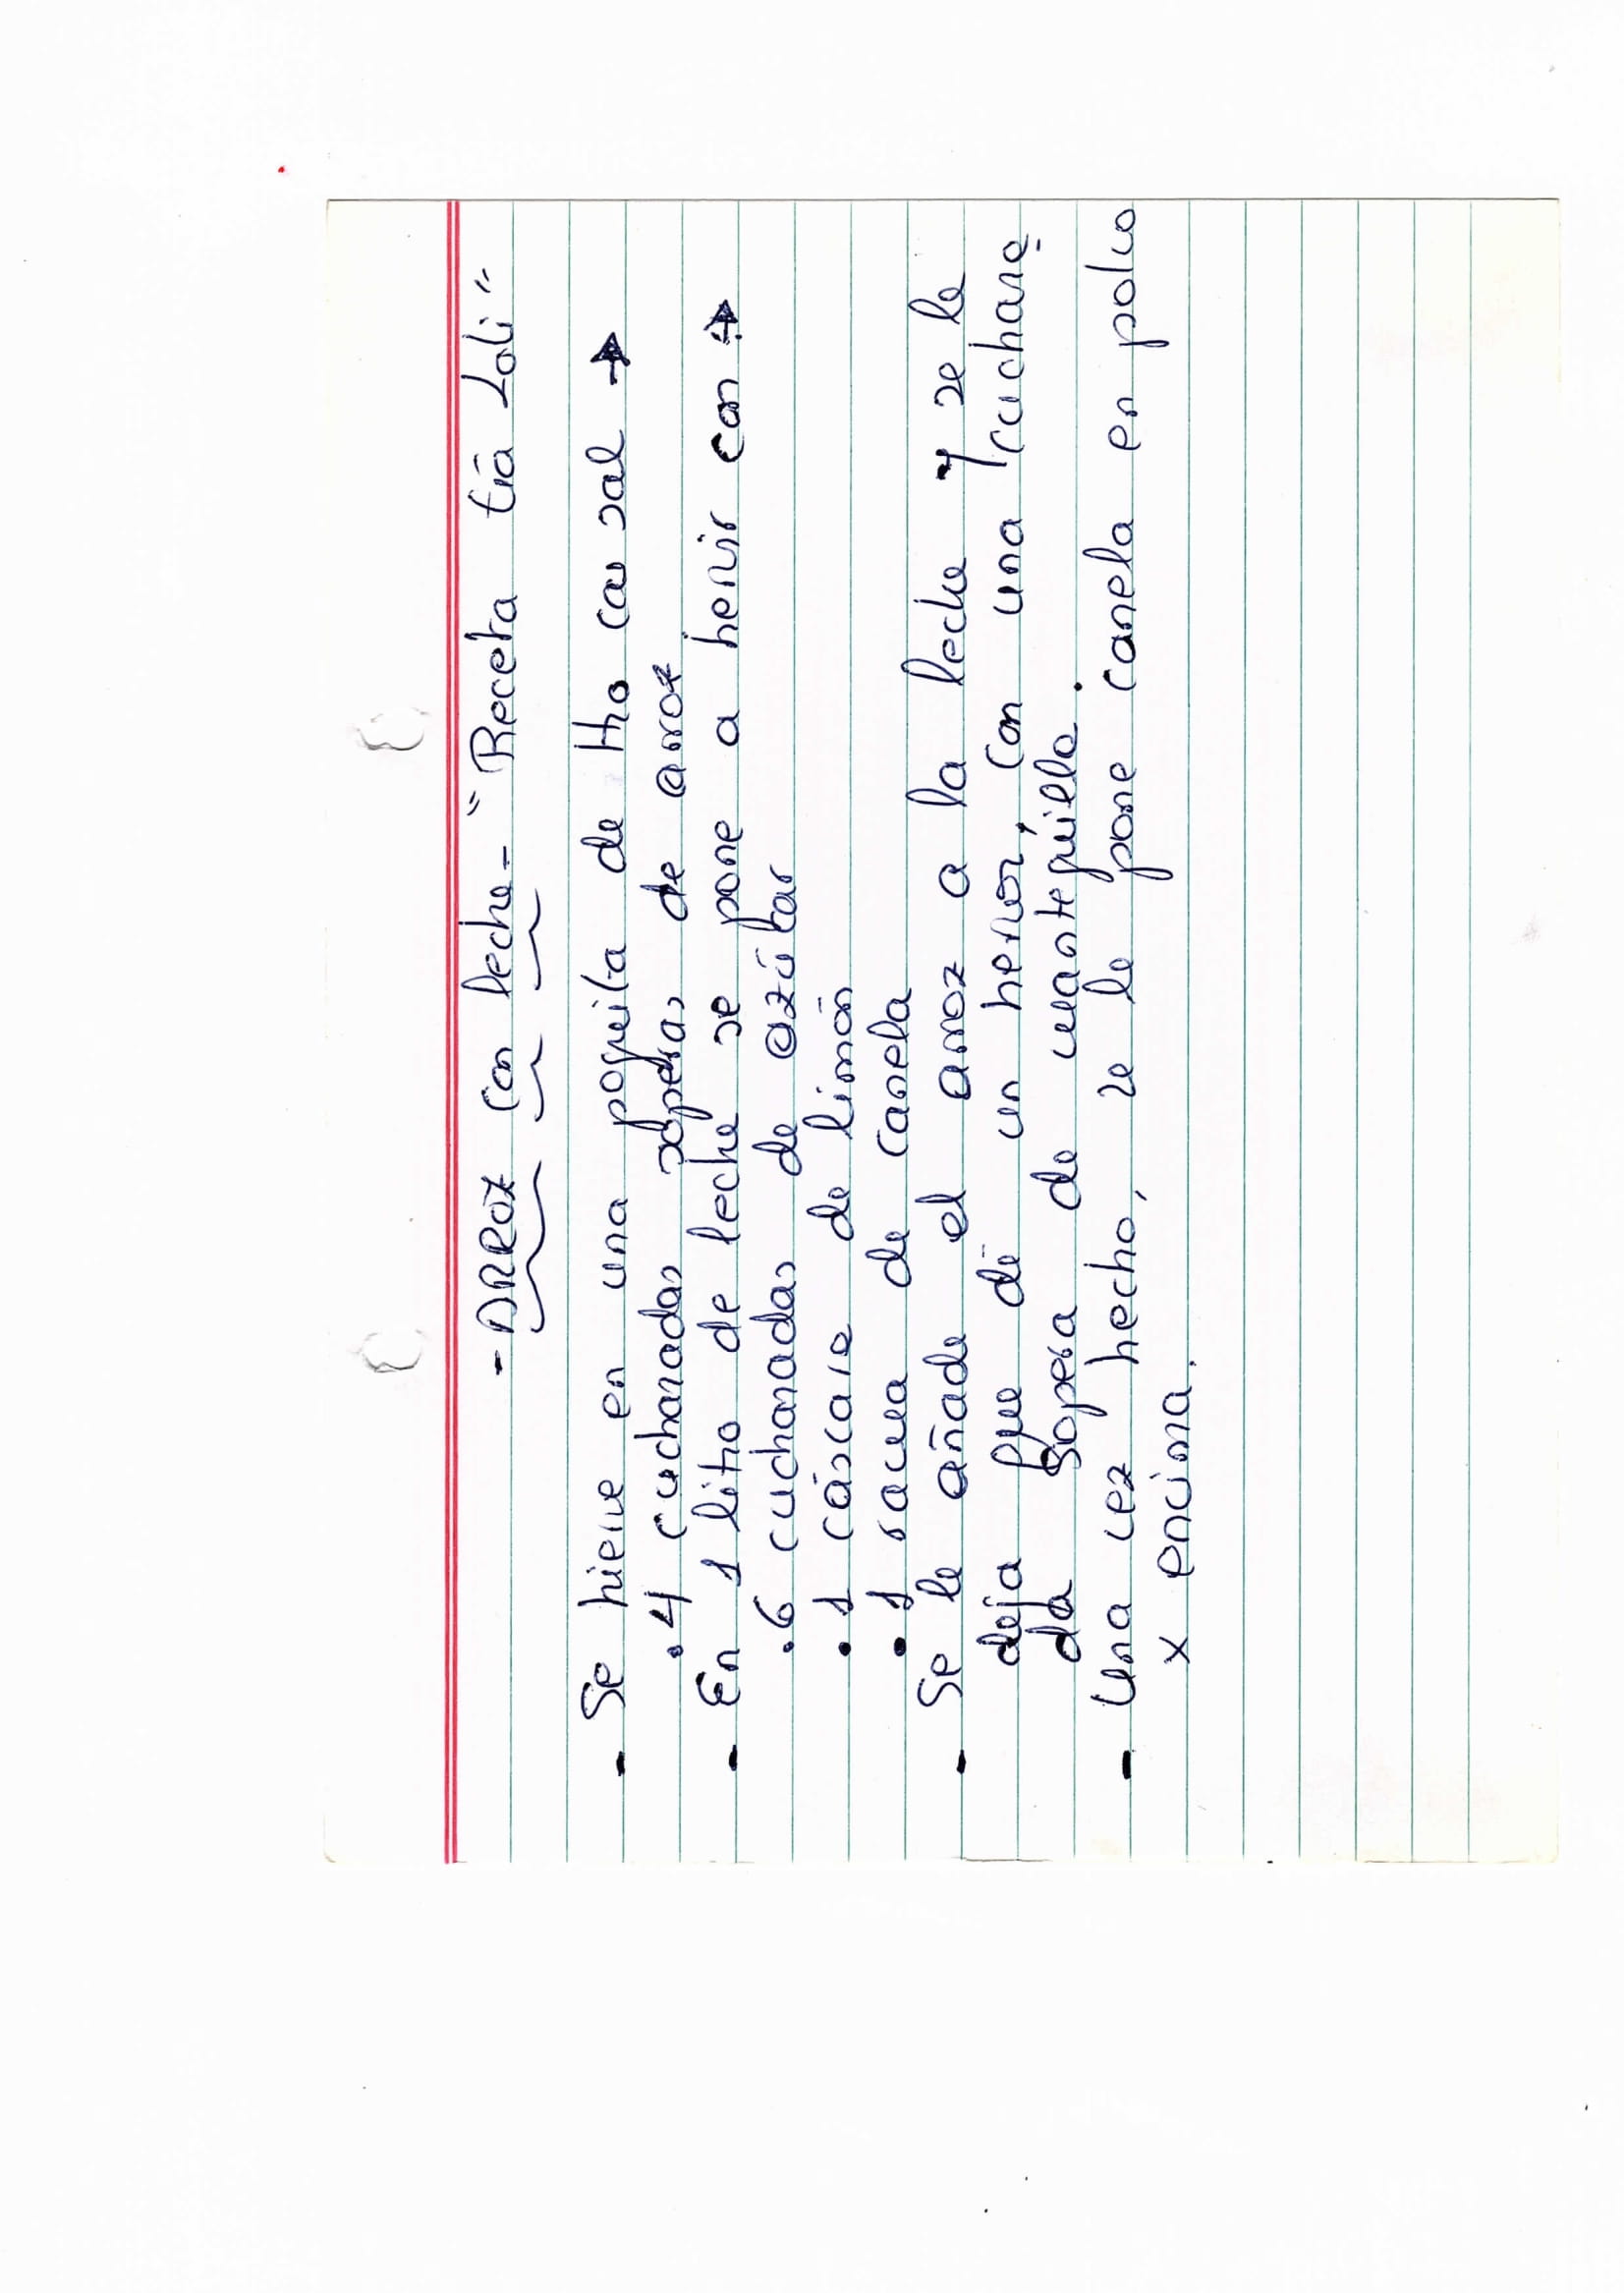 - ARROZ con leche - "Receta tía Loli"
- Se hierve en una poquita de H₂O con sal →
. 4 cucharadas soperas de arroz
- En 1 litro de leche se pone a hervir con: →
. 6 cucharadas de azúcar
. 1 cáscara de limón
. 1 rama de canela
- Se le añade el arroz a la leche y se le
deja que dé un hervor, con una cuchara
da sopera de mantequilla.
- Una vez hecho, se le pone canela en polvo
x encima.